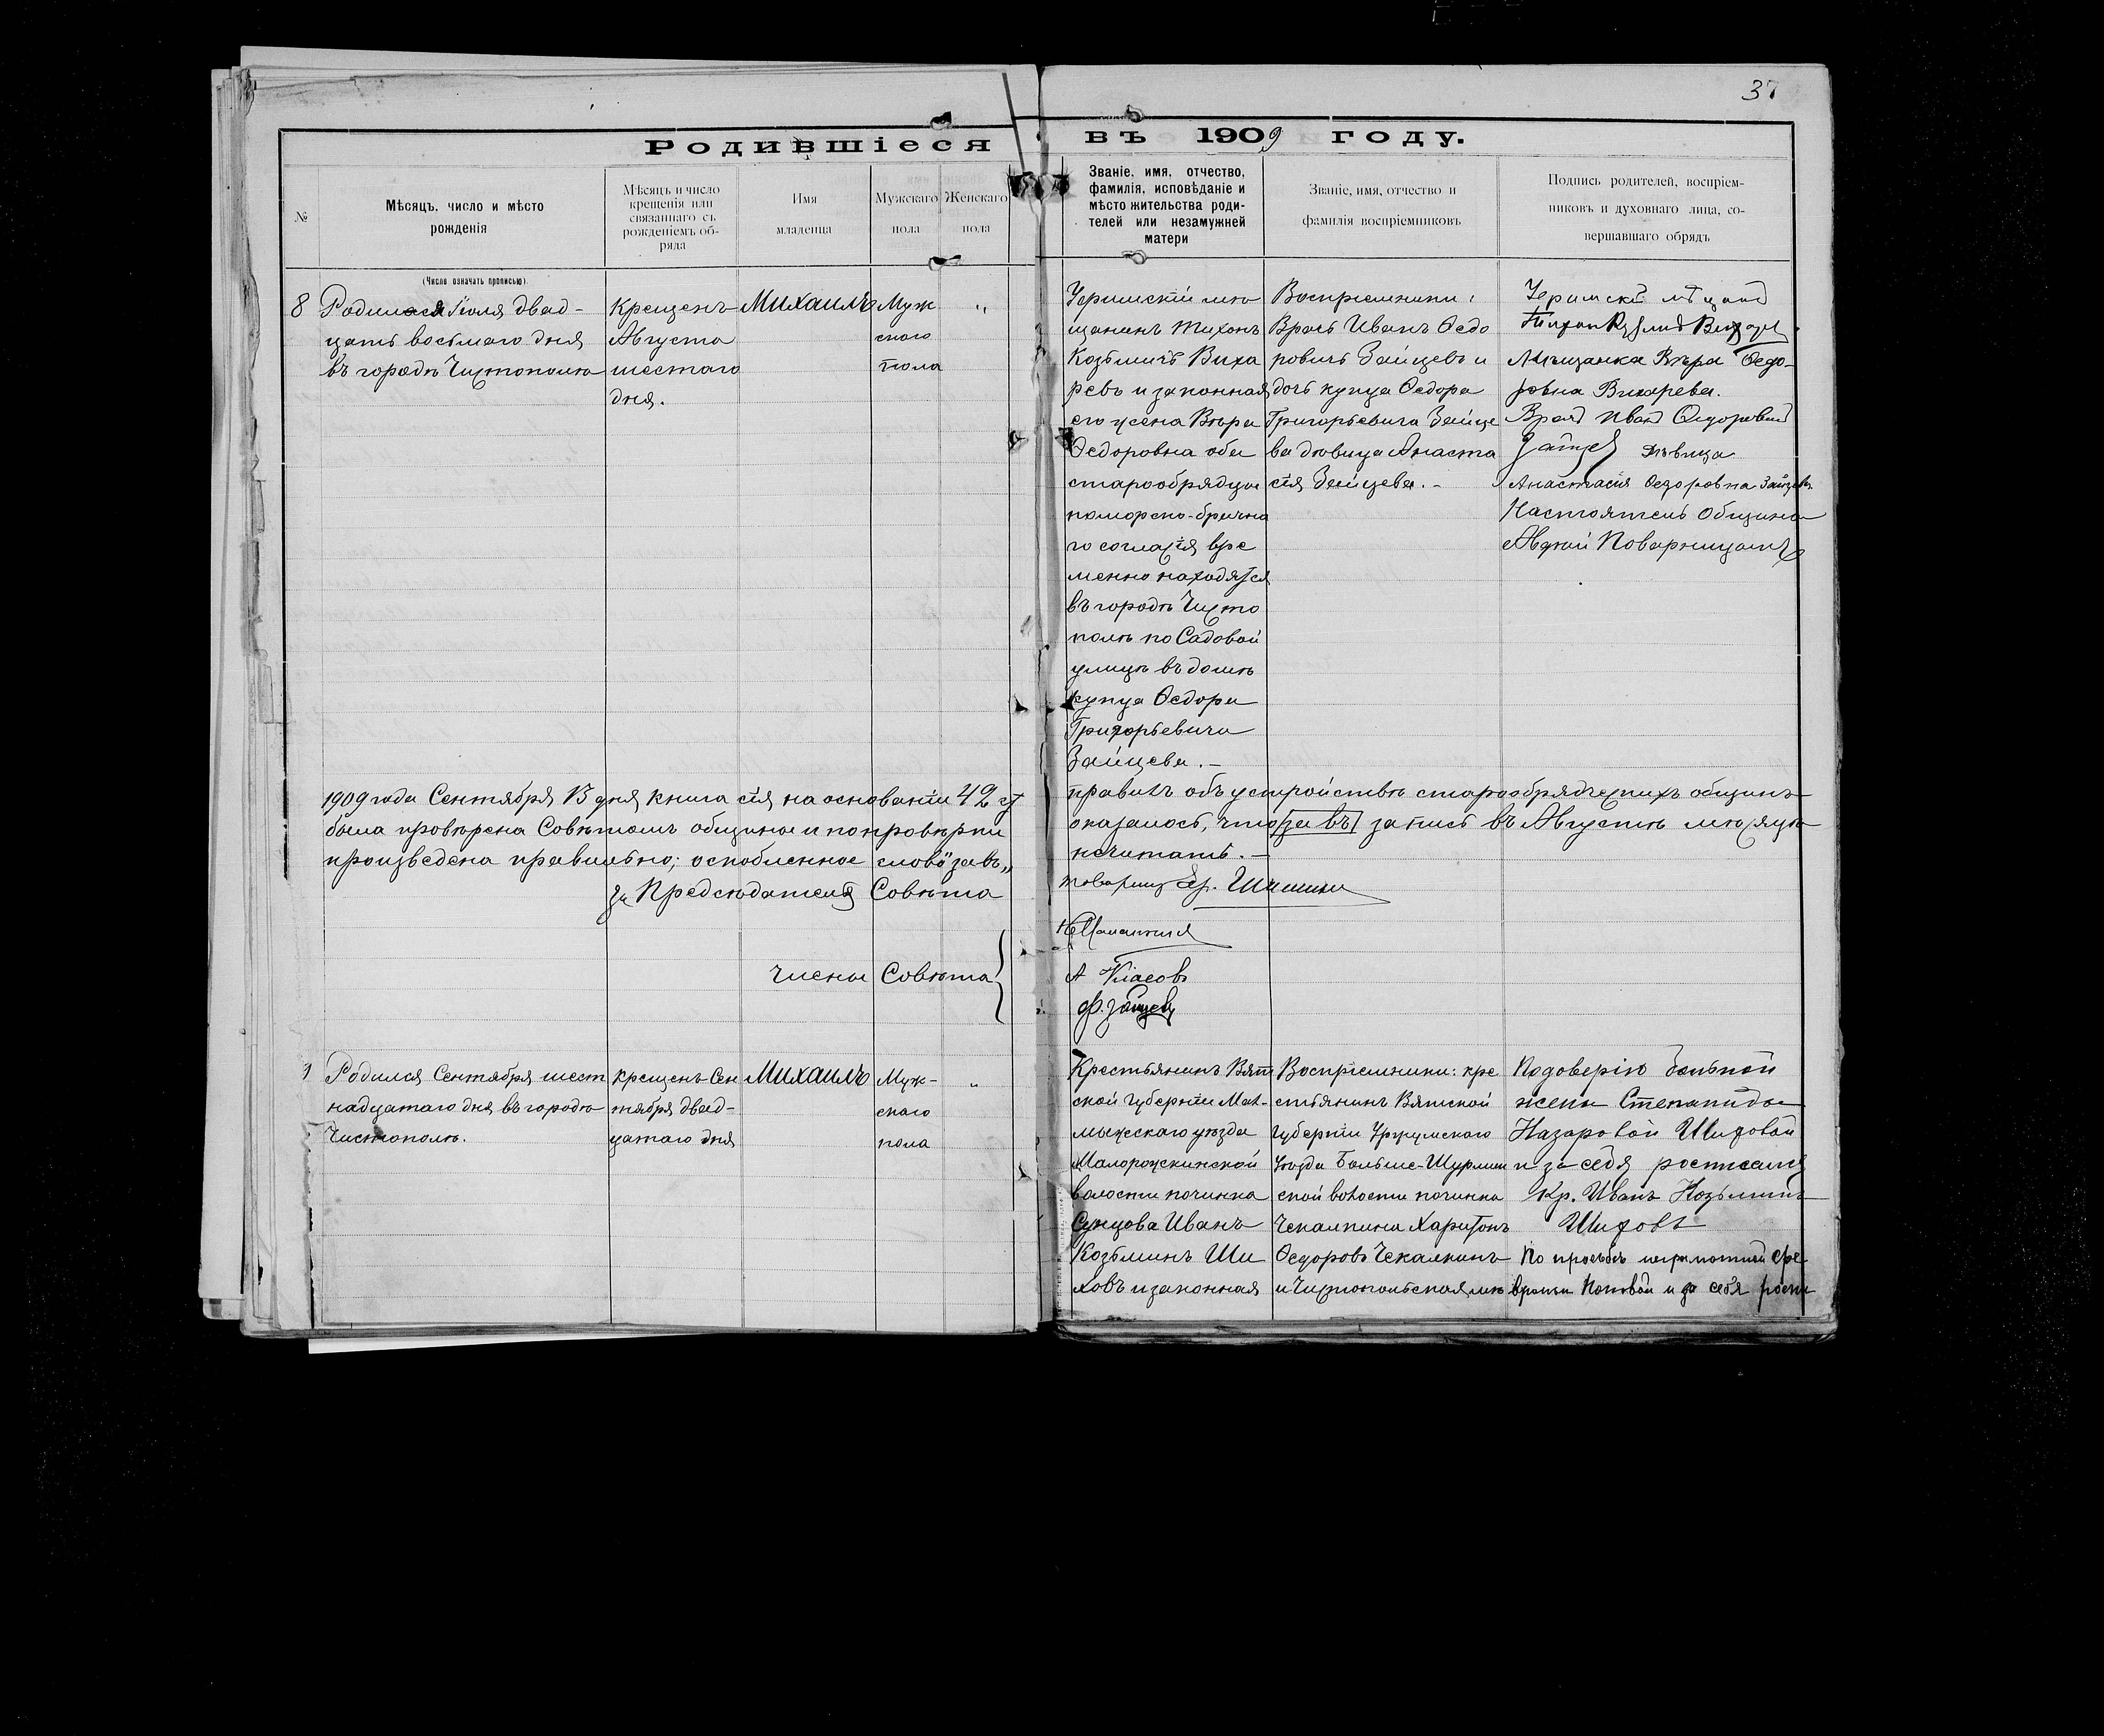 37
Родившіеся въ 1909 году.
№
Мѣсяцъ, число и мѣсто
рожденія
(Число означать прописью)
Мѣсяцъ и число
крещенія или
связаннаго съ
рожденіемъ об-
ряда
Имя
младенца
Мужскаго
пола
Женскаго
пола
Званіе, имя, отчество,
фамилія, исповѣданіе и
мѣсто жительства роди-
телей или незамужней
матери
Званіе, имя, отчество и
фамилія воспріемниковъ
Подпись родителей, воспріем-
никовъ и духовнаго лица, со-
вершавшаго обрядъ
8
Родился Іюля двад-
цать восьмаго дня
въ городѣ Чистополѣ
Крещенъ
Августа
шестаго
дня.
Михаилъ
Муж
скаго
пола
"
мѣ
щанинъ Тихонъ
Козьмичъ Виха
ревъ и законная
его жена Вѣра
Ѳедоровна оба
старообрядцы
поморско-брачна
го согласія вре
менно находятся
въ городѣ Чисто
полѣ по Садовой
улицѣ въ домѣ
купца Ѳедора
Григорьевича
Зайцева.-
Воспріемники:
Врачъ Иванъ Ѳедо
ровичъ Зайцевъ и
дочь купца Ѳедора
Григорьевича Зайце
ва дѣвица Анаста
сія Зайцева.-
Мѣщанка Вѣра Ѳедо-
ровна Вихарева.
Врачъ Иванъ Ѳедоровичъ
Зайцевъ дѣвица
Анастасія Ѳедоровна Зайцева
Настоятель Общины
Авдѣй Поварницынъ
1909 года Сентября 13 дня книга сія на основаніи 42 ст
правилъ объ устройствѣ старообрядческихъ общинъ
была провѣрена Совѣтомъ общины и по провѣркѣ
оказалось, что за въ запись въ Августѣ мѣсяцѣ
произведена правильно; оскобленное слово "за въ"
нечитать.-
За Предсѣдателя Совѣта
товарищ Гр. Шашин
Члены Совѣта
А Власовъ
Ф. Зайцевъ
Родился Сентября шест
надцатаго дня въ городѣ
Чистополѣ.
Крещенъ Сен
тября двад-
цатаго дня
Михаилъ
Муж-
скаго
пола
"
Крестьянинъ Вят
ской губерніи Мал-
мыжскаго уѣзда
Малорожкинской
волости починка
Сунцова Иванъ
Козьминъ Ши
ховъ и законная
Воспріемники: кре
стьянинъ Вятской
губерніи Уржумскаго
уѣзда Больше-Шурмин
ской волости починка
Чекалкина Харитонъ
Ѳедоровъ Чекалкинъ
и Чистопольская мѣ
По довѣрію больной
жены Степаниды
Назаровой Шиховой
и за себя росписался
Кр. Иванъ Козьминъ
Шиховъ
По просьбѣ неграмотной Фе
вроньи Поповой и за себя роспи